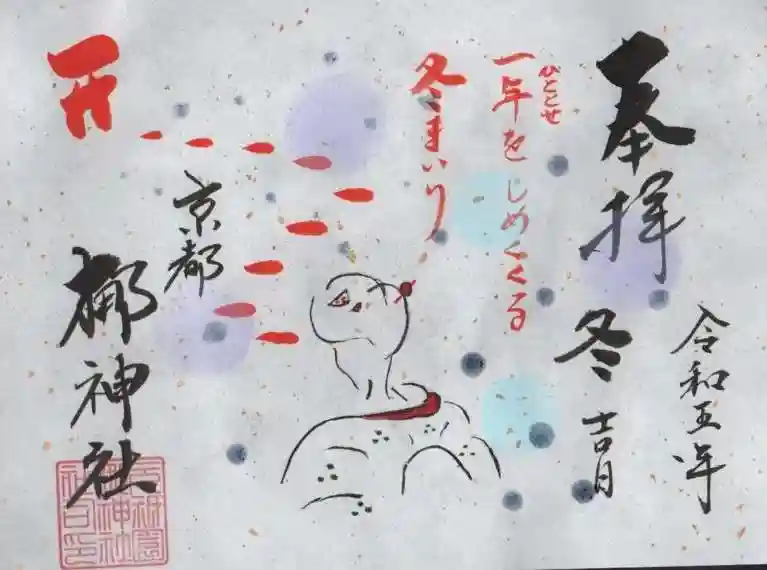 奉拝
令和五年
冬 吉月
ひととせ
一年をしめくくる
冬まいり
京都
梛神社